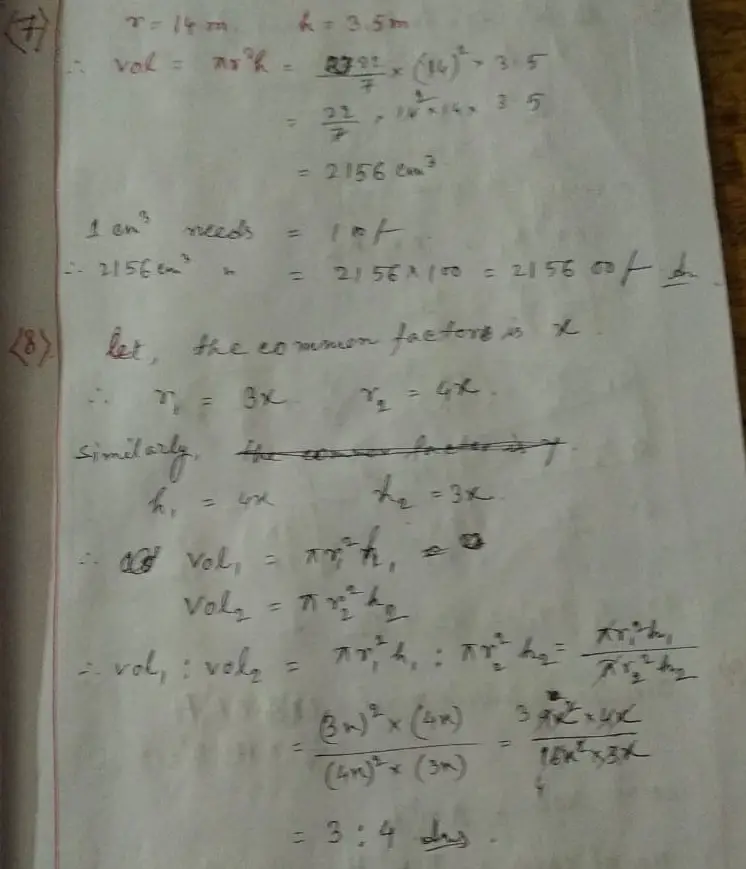 <7> r = 14 m. h = 3.5m
∴ vol = πr²h = 22/7 × (14)² × 3.5
= 22/7 × 14 × 14 × 3.5
= 2156 cm³
1 cm³ needs = 100/-
∴ 2156 cm³ " = 2156 × 100 = 215600/- Ans
<8> let, the common factors is x.
∴ r₁ = 3x r₂ = 4x.
Similarly, the common factor is y.
h₁ = 4x h₂ = 3x.
∴ vol₁ = πr₁²h₁ =
vol₂ = πr₂²h₂
∴ vol₁ : vol₂ = πr₁²h₁ : πr₂²h₂ = πr₁²h₁/πr₂²h₂
= (3x)² × (4x)/(4x)² × (3x) = 3 9x² × 4x/16x² × 3x 4
= 3 : 4 Ans.